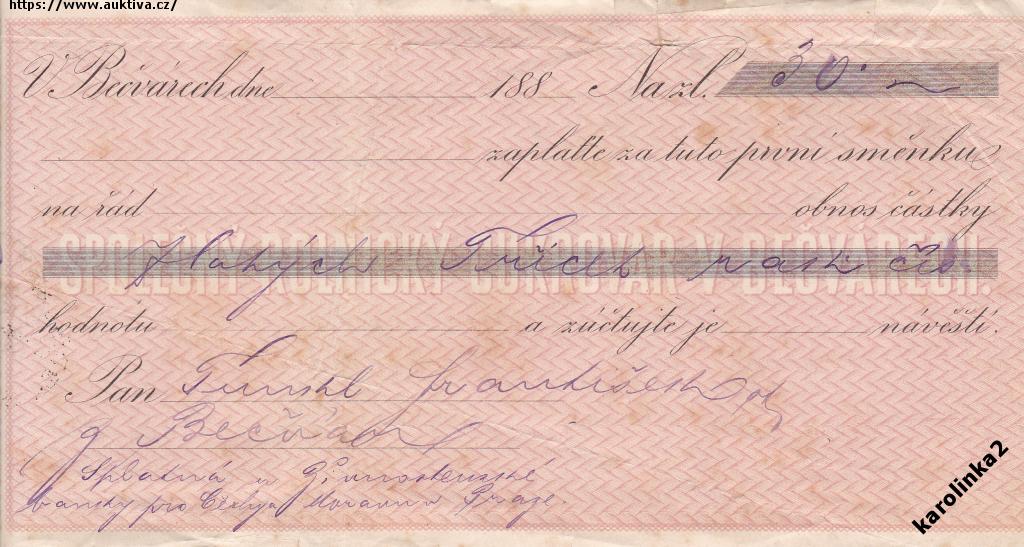 https://www.auktiva.cz/
V Bečvárech dne 188 Na zl. 30·
zaplaťte za tuto první směnku
na řád obnos částky
SPOLEČNÝ ROLNICKÝ CUKROVAR V BEČVÁRECH.
Zlatých Třicet rak. čís.
hodnotu a zúčtujte je návěstí.
Pan František
z Bečvár
Splatná u Živnostenské
banky pro Čechy a Moravu v Praze.
karolinka2